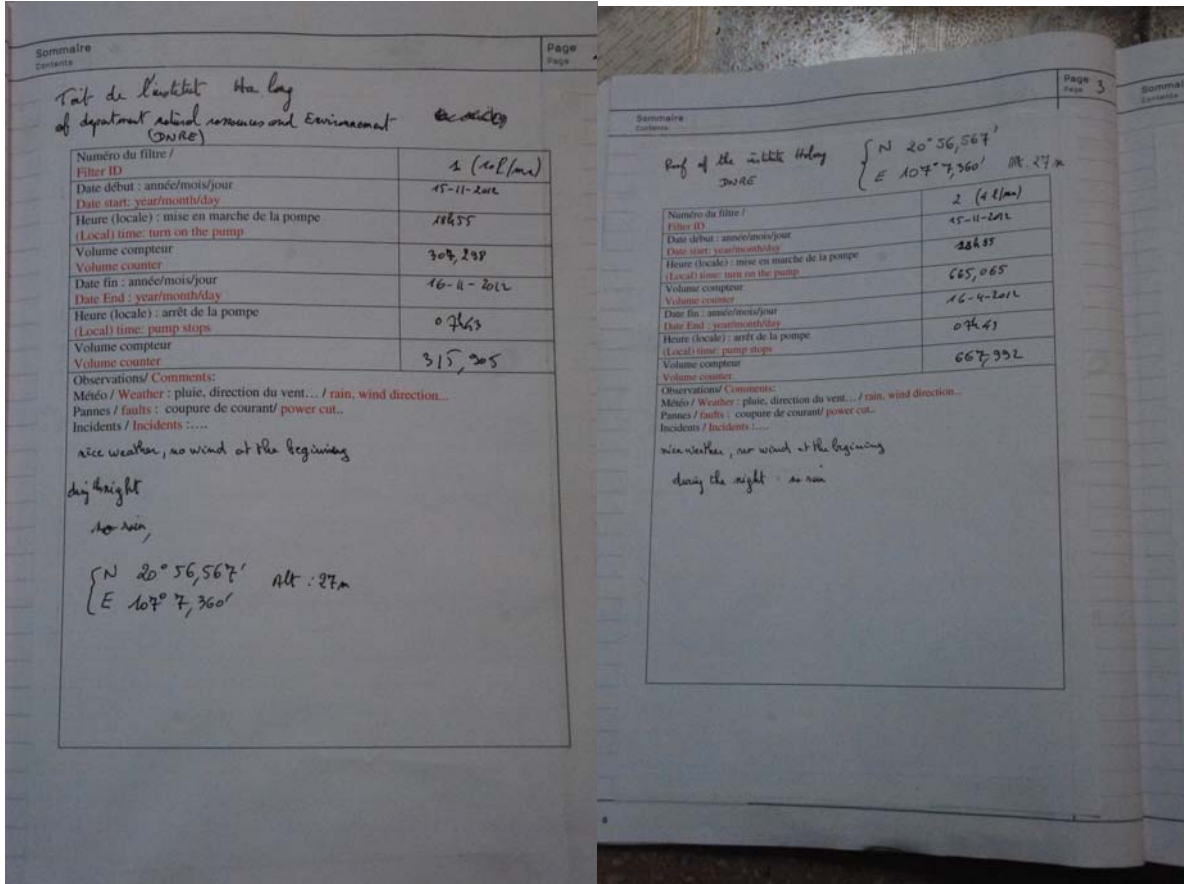 Sommaire
Contents
Page
Page
Toit de l'institut Ha long
of department natural ressources and Environnement
(DNRE)
Numéro du filtre /
Filter ID
1 (10 l/mn)
Date début : année/mois/jour
Date start: year/month/day
15-11-2012
Heure (locale) : mise en marche de la pompe
(Local) time: turn on the pump
18h55
Volume compteur
Volume counter
307,298
Date fin : année/mois/jour
Date End : year/month/day
16-11-2012
Heure (locale) : arrêt de la pompe
(Local) time: pump stops
07h43
Volume compteur
Volume counter
315,905
Observations/ Comments:
Météo / Weather : pluie, direction du vent… / rain, wind direction...
Pannes / faults : coupure de courant/ power cut..
Incidents / Incidents :….
nice weather, no wind at the beginning
night
no rain,
N 20° 56,567'
E 107° 7,360'
Alt : 27m
Page
Page 3
Sommaire
Contents
Roof of the institute Halong
DNRE
N 20° 56,567'
E 107° 7,360'
Alt. 27 m
Numéro du filtre /
Filter ID
2 (4 l/mn)
Date début : année/mois/jour
Date start: year/month/day
15-11-2012
Heure (locale) : mise en marche de la pompe
(Local) time: turn on the pump
18h55
Volume compteur
Volume counter
665,065
Date fin : année/mois/jour
Date End : year/month/day
16-11-2012
Heure (locale) : arrêt de la pompe
(Local) time: pump stops
07h43
Volume compteur
Volume counter
667,992
Observations/ Comments:
Météo / Weather : pluie, direction du vent… / rain, wind direction...
Pannes / faults : coupure de courant/ power cut..
Incidents / Incidents :….
nice weather, no wind at the beginning
during the night : no rain
8